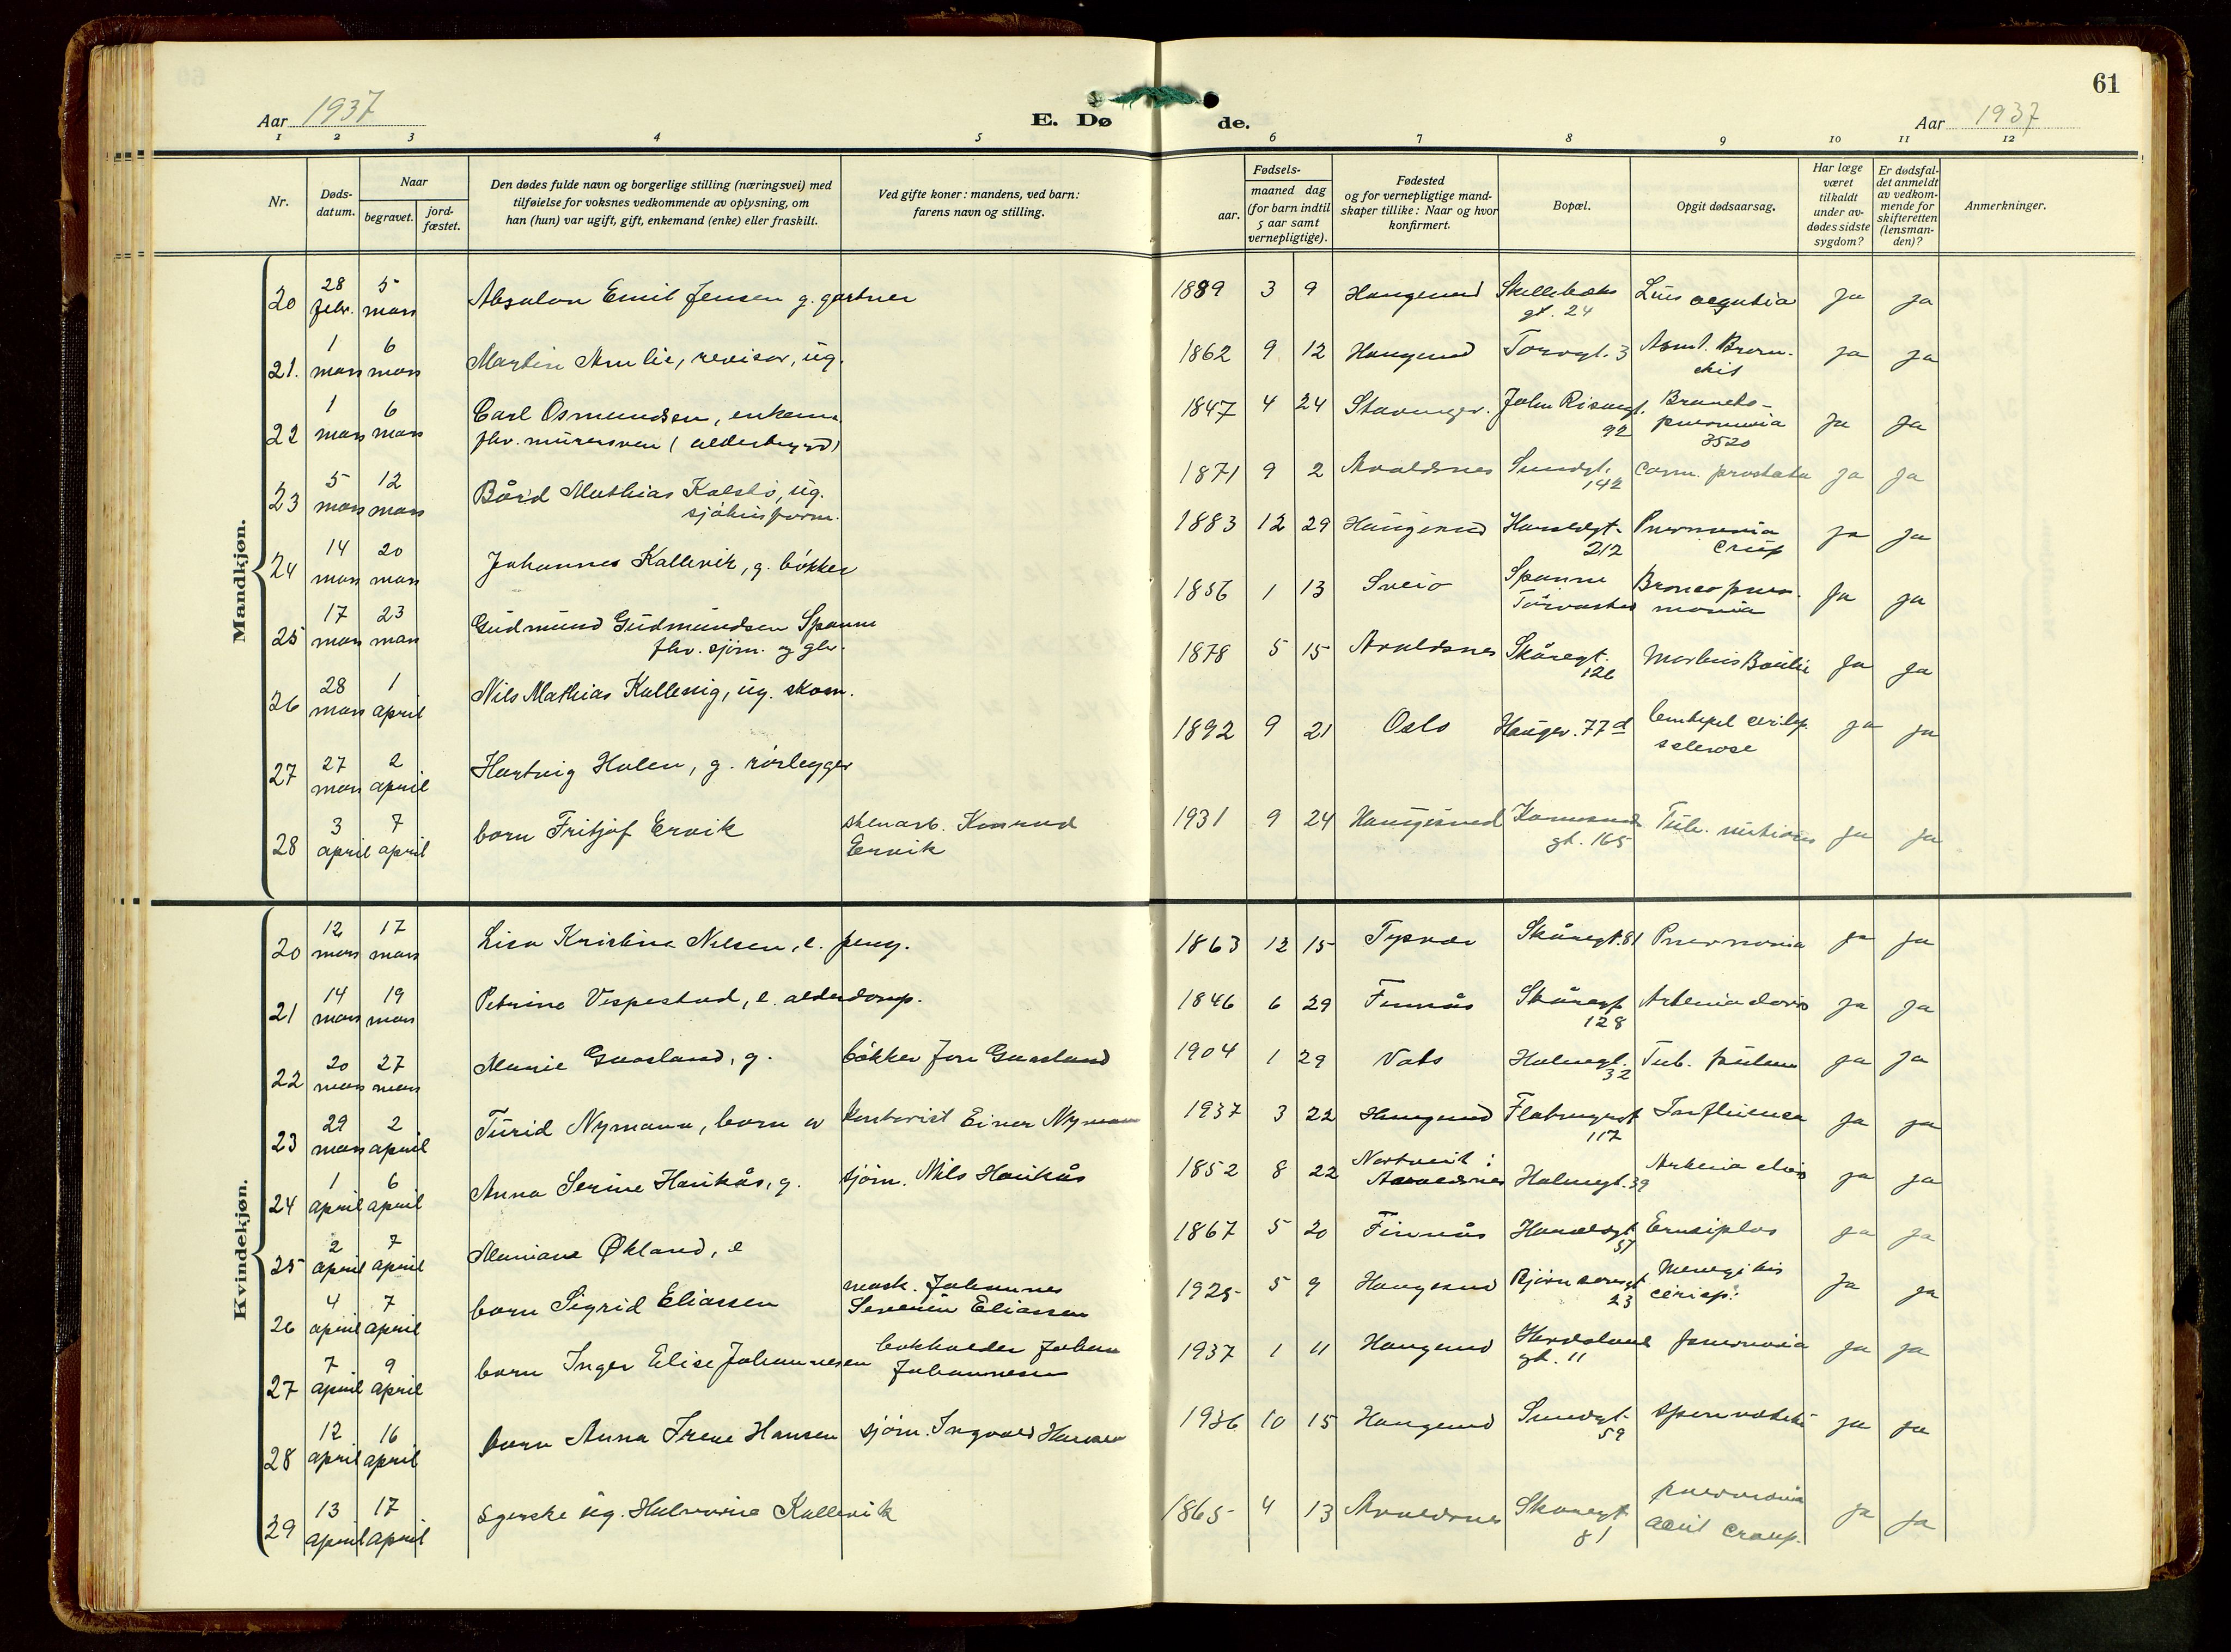 61
Aar 1937
E. Dø de.
Aar 1937
1 2 3 4 5 6 7 8 9 10 11 12
Nr.
Døds-datum.
Naar
begravet.
jord-fæstet.
Den dødes fulde navn og borgerlige stilling (næringsvei) med
tilføielse for voksnes vedkommende av oplysning, om
han (hun) var ugift, gift, enkemand (enke) eller fraskilt.
Ved gifte koner: mandens, ved barn:
farens navn og stilling.
Fødsels-
aar.
maaned dag
(for barn indtil
5 aar samt
vernepligtige).
Fødested
og for vernepligtige mand-
skaper tillike: Naar og hvor
konfirmert.
Bopæl.
Opgit dødsaarsag.
Har læge
været
tilkaldt
under av-
dødes sidste
sygdom?
Er dødsfal-
det anmeldt
av vedkom-
mende for
skifteretten
(lensman-
den)?
Anmerkninger.
Mandkjøn.
20 28 febr. 5 mars Absalon Emil Jensen g. gartner 1889 3 9 Haugesund gt. 24 ja ja
21. 1 mars 6 mars Martin Amlie, revisor, ug. 1862 9 12 Haugesund Torvgt. 3 ja ja
22 1 mars 6 mars Carl Osmundsen, enkem.
fhv. murersven (alderstrygd) 1847 4 24 Stavanger. John Risangt. 92 Broncho-
pneumonia
3520 ja ja
23 5 mars 12 mars Bård Mathias Kolstø, ug. 1871 9 2 Avaldsnes Sundgt. 142 prostata ja ja
24 14 mars 20 mars Johannes Kallevik, g. bøkker 1883 12 29 Haugesund Haraldsgt. 212 Pneumonia
Crup ja ja
25 17 mars 23 mars Gudmund Gudmundsen Spanne
fhv. sjøm. og gbr. 1856 1 13 Sveio Spanne
Torvastad Broncopneu-
monia ja ja
26 28 mars 1 april Nils Mathias Kallevig, ug. skom. 1878 5 15 Avaldsnes Skåregt. 126 Morbus ja ja
27 27 mars 2 april Hartvig Holen, g. rørlegger 1892 9 21 Oslo Haugev. 77d sclerose ja ja
28 3 april 7 april barn Fritjof Ervik Konrad
Ervik 1931 9 24 Haugesund Karmsund
gt. 165 Tub. ja ja
Kvindekjøn.
20 12 mars 17 mars Lisa Kristine Nilsen, e. 1863 12 15 Tysvær Skåregt. 81 Pneumonia ja ja
21 14 mars 19 mars Petrine Vespestad, e. 1846 6 29 Finnås Skåregt 128 ja ja
22 20 mars 27 mars Marie Gaasland, g. bøkker Jon Gaasland 1904 1 29 Vats Holmegt. 32 Tub. pulm ja ja
23 29 mars 2 april Turid Nymann, barn av kontorist Einar Nymann 1937 3 22 Haugesund Flotmyrgt 117 Influensa ja ja
24 1 april 6 april Anna Serine Haukås, g. sjøm. Nils Haukås 1852 8 22 Avaldsnes Holmegt. 39 ja ja
25 2 april 7 april Mariane Økland, e 1867 5 20 Finnås Haraldsgt 57 ja ja
26 4 april 7 april barn Sigrid Eliassen mask. Johannes
Severin Eliassen 1925 5 9 Haugesund Bjørnsonsgt 23 ja ja
27 7 april 9 april barn Inger Elise Johannesen bokholder Johan
Johannesen 1937 1 11 Haugesund gt. 11 pneumonia ja ja
28 12 april 16 april barn Anna Irene Hansen sjøm. Ingvald Hansen 1936 10 15 Haugesund Sundgt. 59 ja ja
29 13 april 17 april ug. Kallevik 1865 4 13 Avaldsnes Skaregt 81 pneumonia
acut croup. ja ja